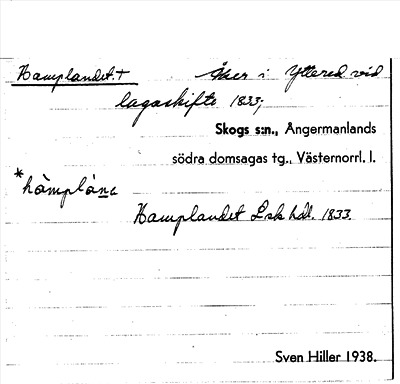 Hamplandet.+ Åker i Yttered vid
lagaskifte 1833;
Skogs s:n., Ångermanlands
södra domsagas tg., Västernorrl. l.
*hàmplána
Hamplandet Lsk hdl. 1833.
Sven Hiller 1938.